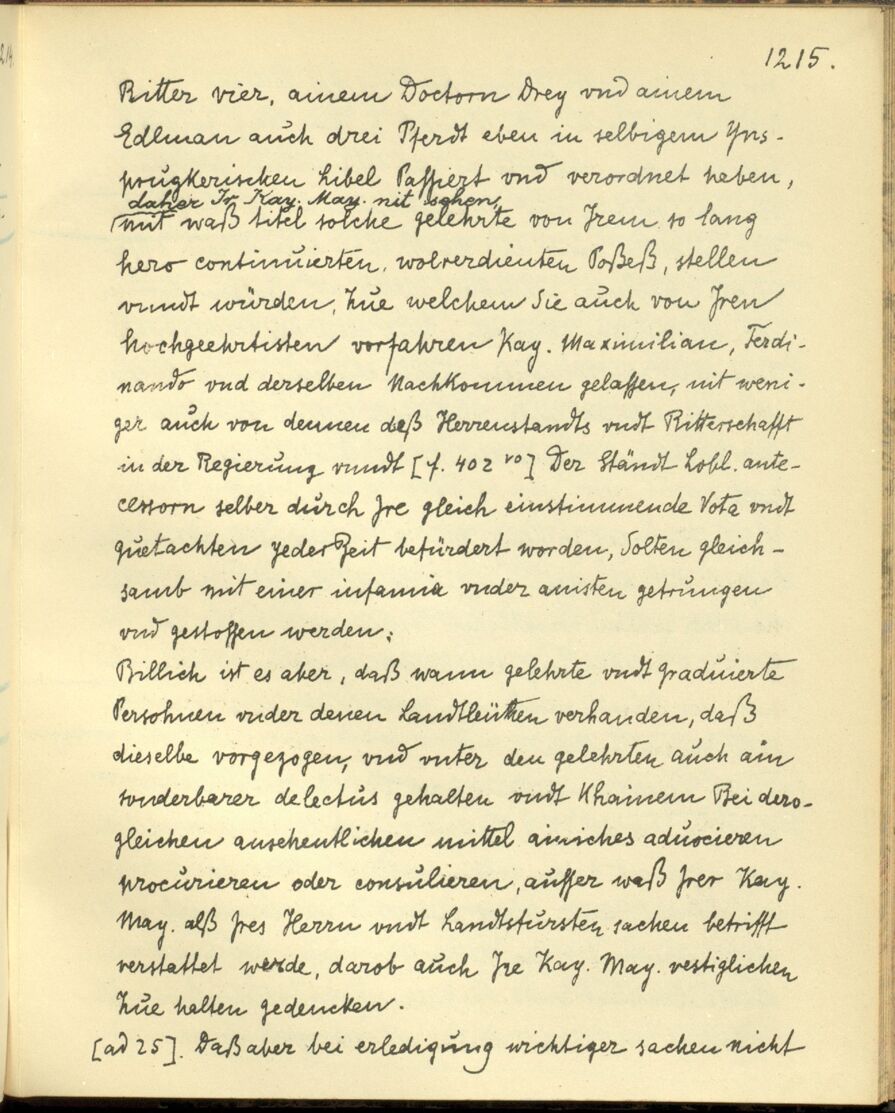 1215.
Ritter vier, ainem Doctorn Drey vnd ainem
Edlman auch drei Pferdt eben in selbigem Yns-
prugkerischen Libel Passiert vnd verordnet haben,
daher Ir Kay. May. nit sehen,
mit waß titel solche gelehrte von Irem so lang
hero continuierten, wolverdienten Poßeß, stellen
vnndt würden, Zue welchem Sie auch von Iren
hochgeehrtisten vorfahren Kay. Maximilian, Ferdi-
nando vnd derselben Nachkommen gelassen, nit weni-
ger auch von dennen deß Herrenstandts vndt Ritterschafft
in der Regierung vnndt [f. 402 vo] Der Ständt Lobl. ante-
cessorn selber durch Ire gleich einstimmende Vota vndt
guetachten yeder Zeit befürdert worden, Solten gleich-
samb mit einer infamia vnder anisten getrungen
vnd gestossen werden;
Billich ist es aber, daß wann gelehrte vndt graduierte
Persohnen vnder denen Landtleütten verhanden, daß
dieselbe vorgezogen, vnd vnter den gelehrten auch ain
sonderbarer delectus gehalten vndt Khainem Bei dero-
gleichen ansehentlichen mittel ainiches aduocieren
procurieren oder consulieren, ausser waß Irer Kay.
May. alß Ires Herrn vndt Landtsfürsten sachen betrifft
verstattet werde, darob auch Ire Kay. May. vestiglichen
Zue halten gedencken.
[ad 25]. Daß aber bei erledigung wichtiger sachen nicht